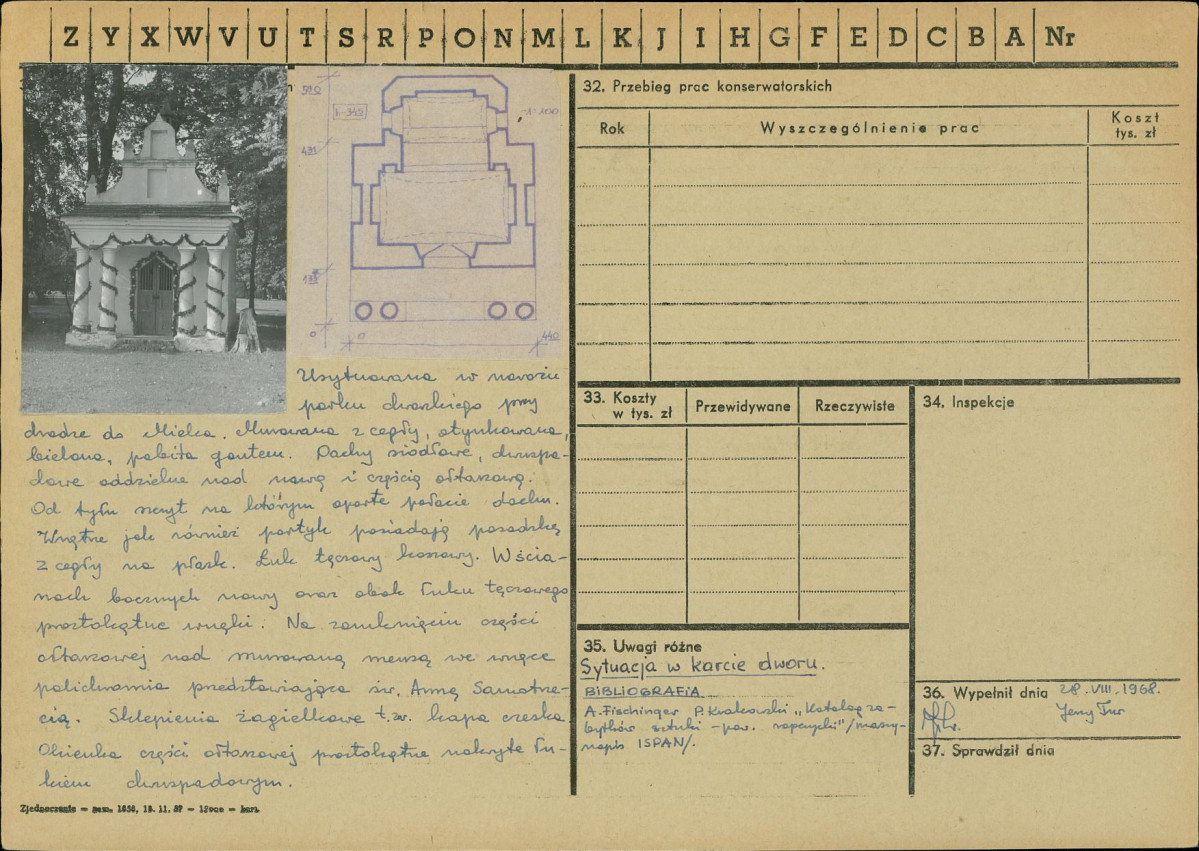 Z Y X W V U T S R P O N M L K J I H G F E D C B A Nr
590
431
135
0
0
440
1:100
Usytuowana w narożu
parku dworskiego przy
drodze do Mielca. Murowana z cegły, otynkowana,
bielona, pobita gontem. Dachy siodłowe, dwuspa-
dowe oddzielne nad nawą i częścią ołtarzową.
Od tyłu szczyt na którym oparte połacie dachu.
Wnętrze jak również portyk posiadają posadzkę
z cegły na płask. Łuk tęczowy koszowy. W ścia-
nach bocznych nawy oraz obok łuku tęczowego
prostokątne wnęki. Na zamknięciu części
ołtarzowej nad murowaną mensą we wnęce
polichromia przedstawiająca św. Annę Samotrze-
cią. Sklepienia żagielkowe t.zw. kapa czeska
Okienka części ołtarzowej prostokątne nakryte łu-
kiem dwuspadowym.
32. Przebieg prac konserwatorskich
Rok
Wyszczególnienie prac
Koszt
tys. zł
33. Koszty
w tys. zł
Przewidywane
Rzeczywiste
34. Inspekcje
35. Uwagi różne
Sytuacja w karcie dworu.
BIBLIOGRAFIA
A. Fischinger P. Krakowski „Katalog za-
bytków sztuki - pow. ropczycki"/maszy-
nopis ISPAN/.
36. Wypełnił dnia 28.VIII.1968.
Jerzy Tur
37. Sprawdził dnia